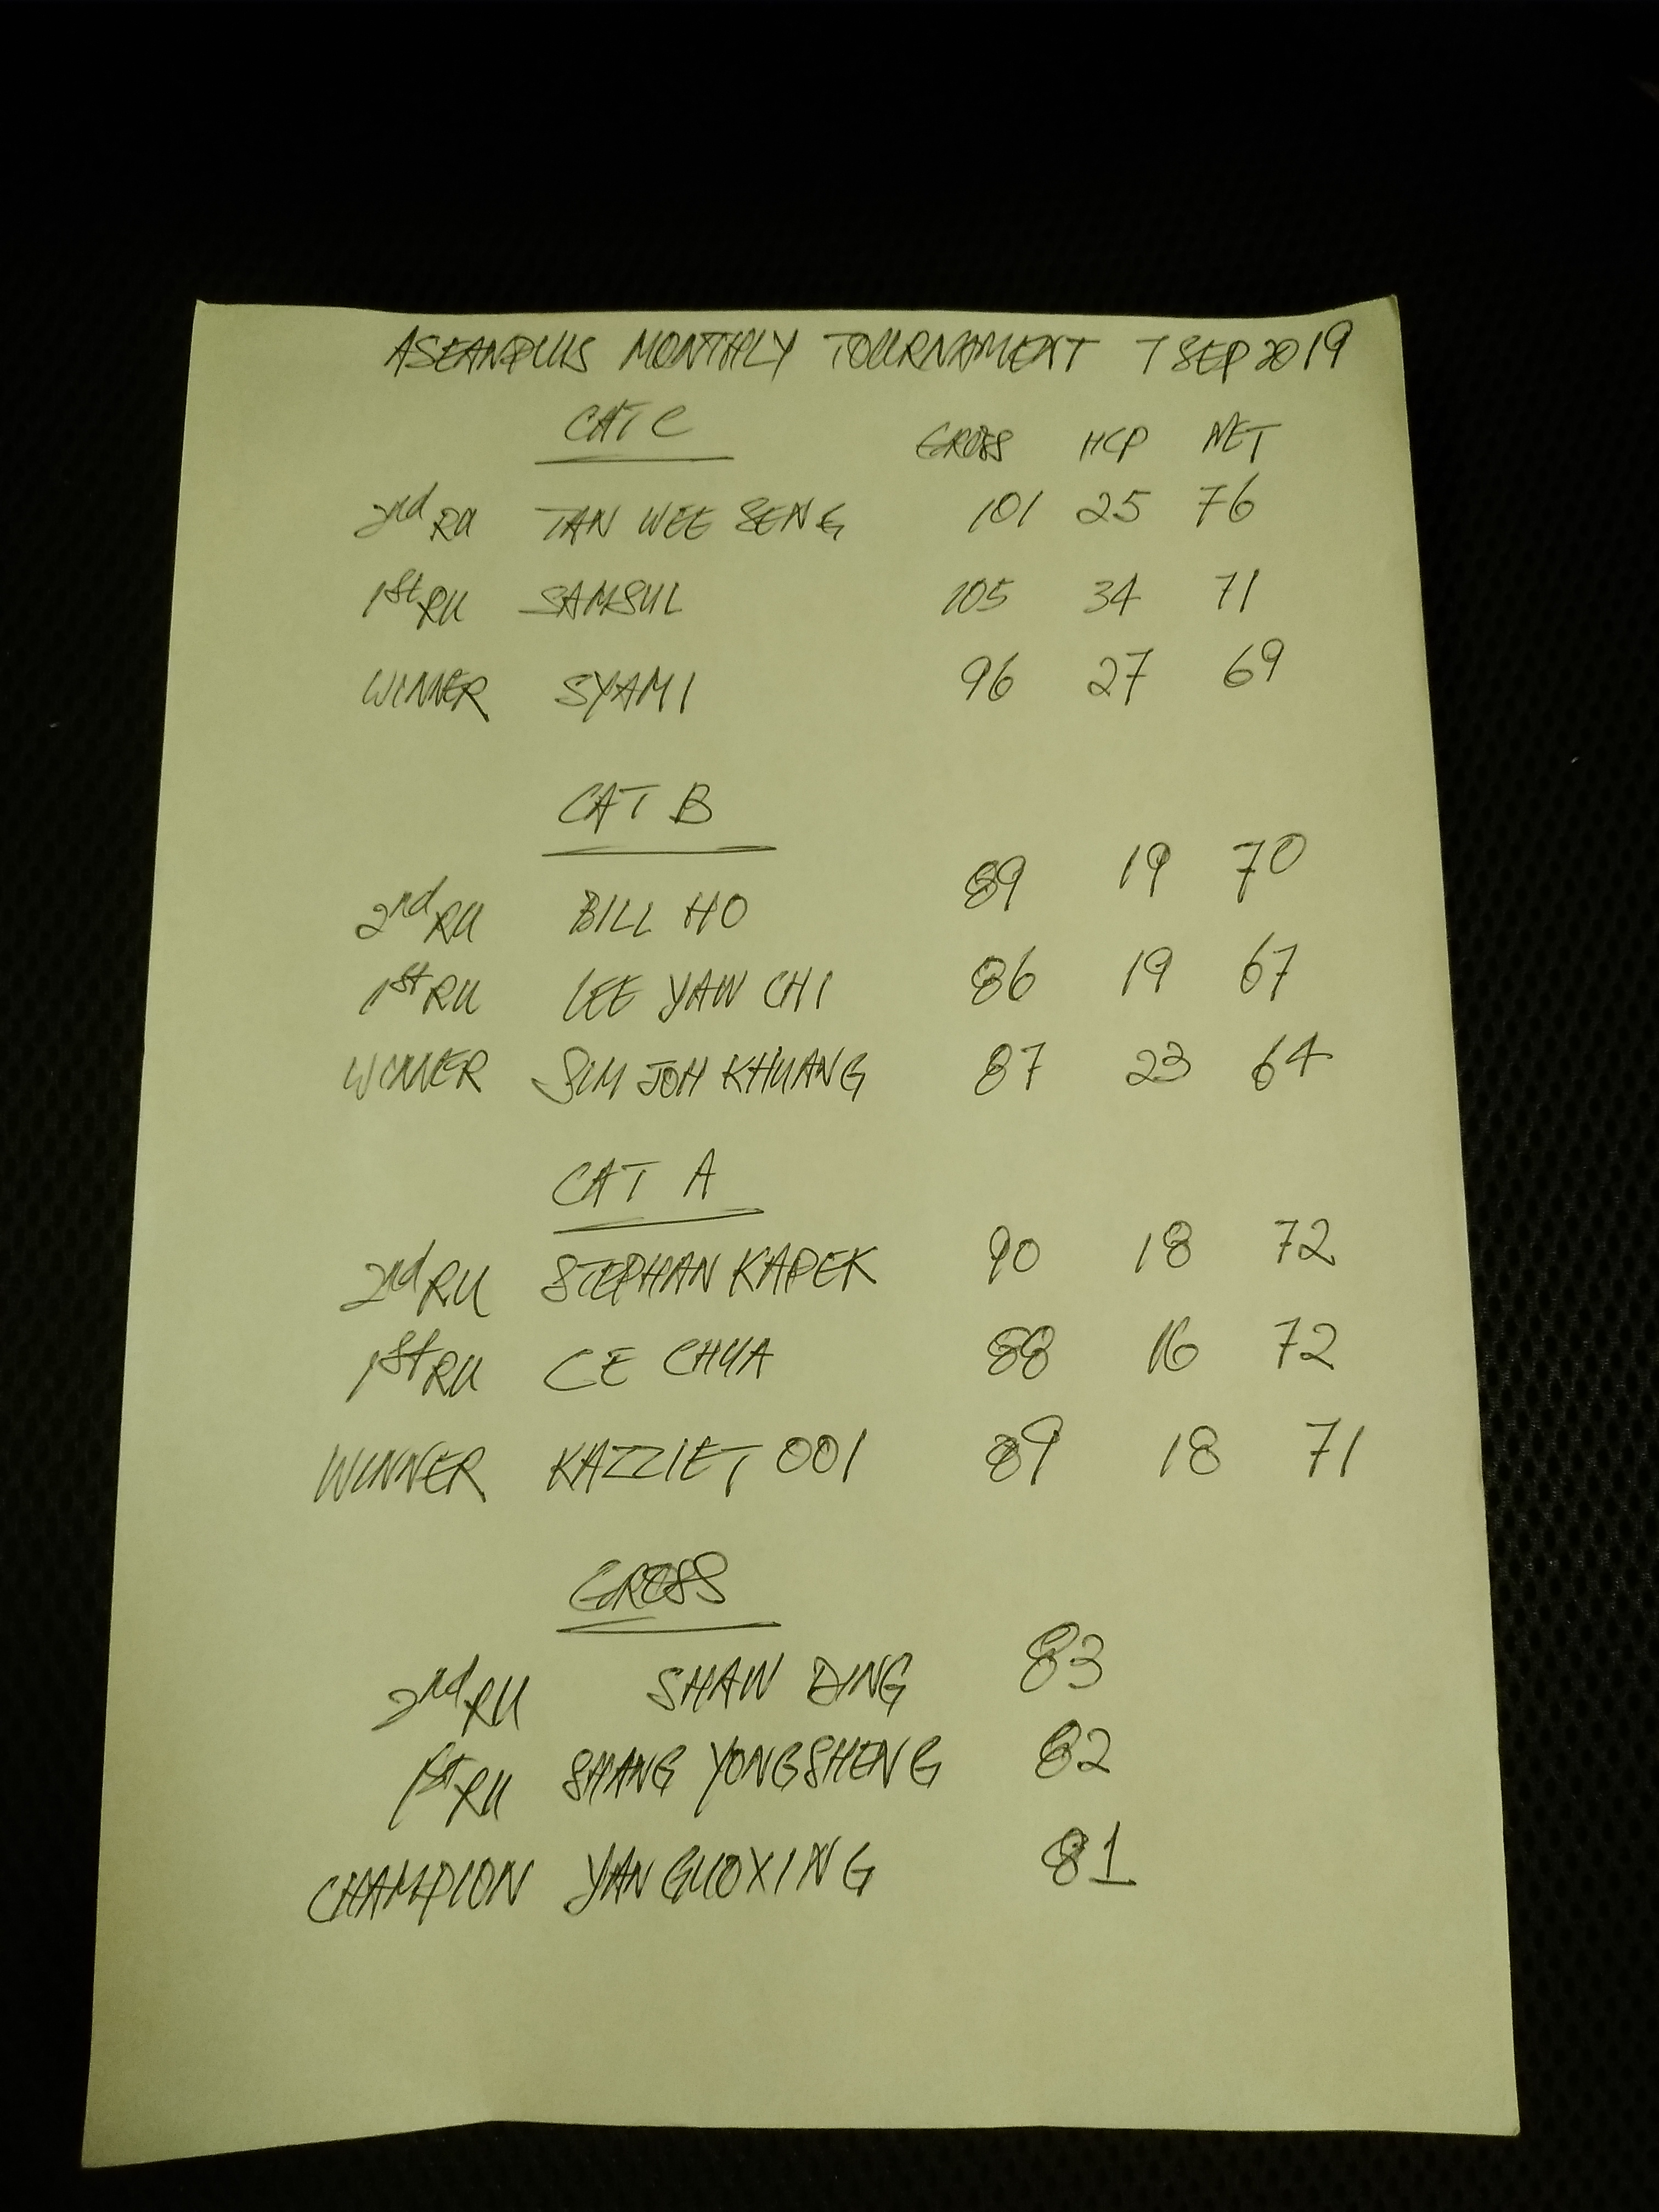 ASEANPLUS MONTHLY TOURNAMENT 7 SEP 2019
CAT C GROSS HCP NET
2nd RU TAN WEE SENG 101 25 76
1st RU SAMSUL 105 34 71
WINNER SYAMI 96 27 69
CAT B
2nd RU BILL HO 89 19 70
1st RU LEE YAW CHI 86 19 67
WINNER SIM JOH KHUANG 87 23 64
CAT A
2nd RU STEPHAN KAPEK 90 18 72
1st RU CE CHUA 88 16 72
WINNER KAZZIET 001 89 18 71
GROSS
2nd RU SHAW DING 83
1st RU SHANG YONGSHENG 82
CHAMPION YANGUOXING 81